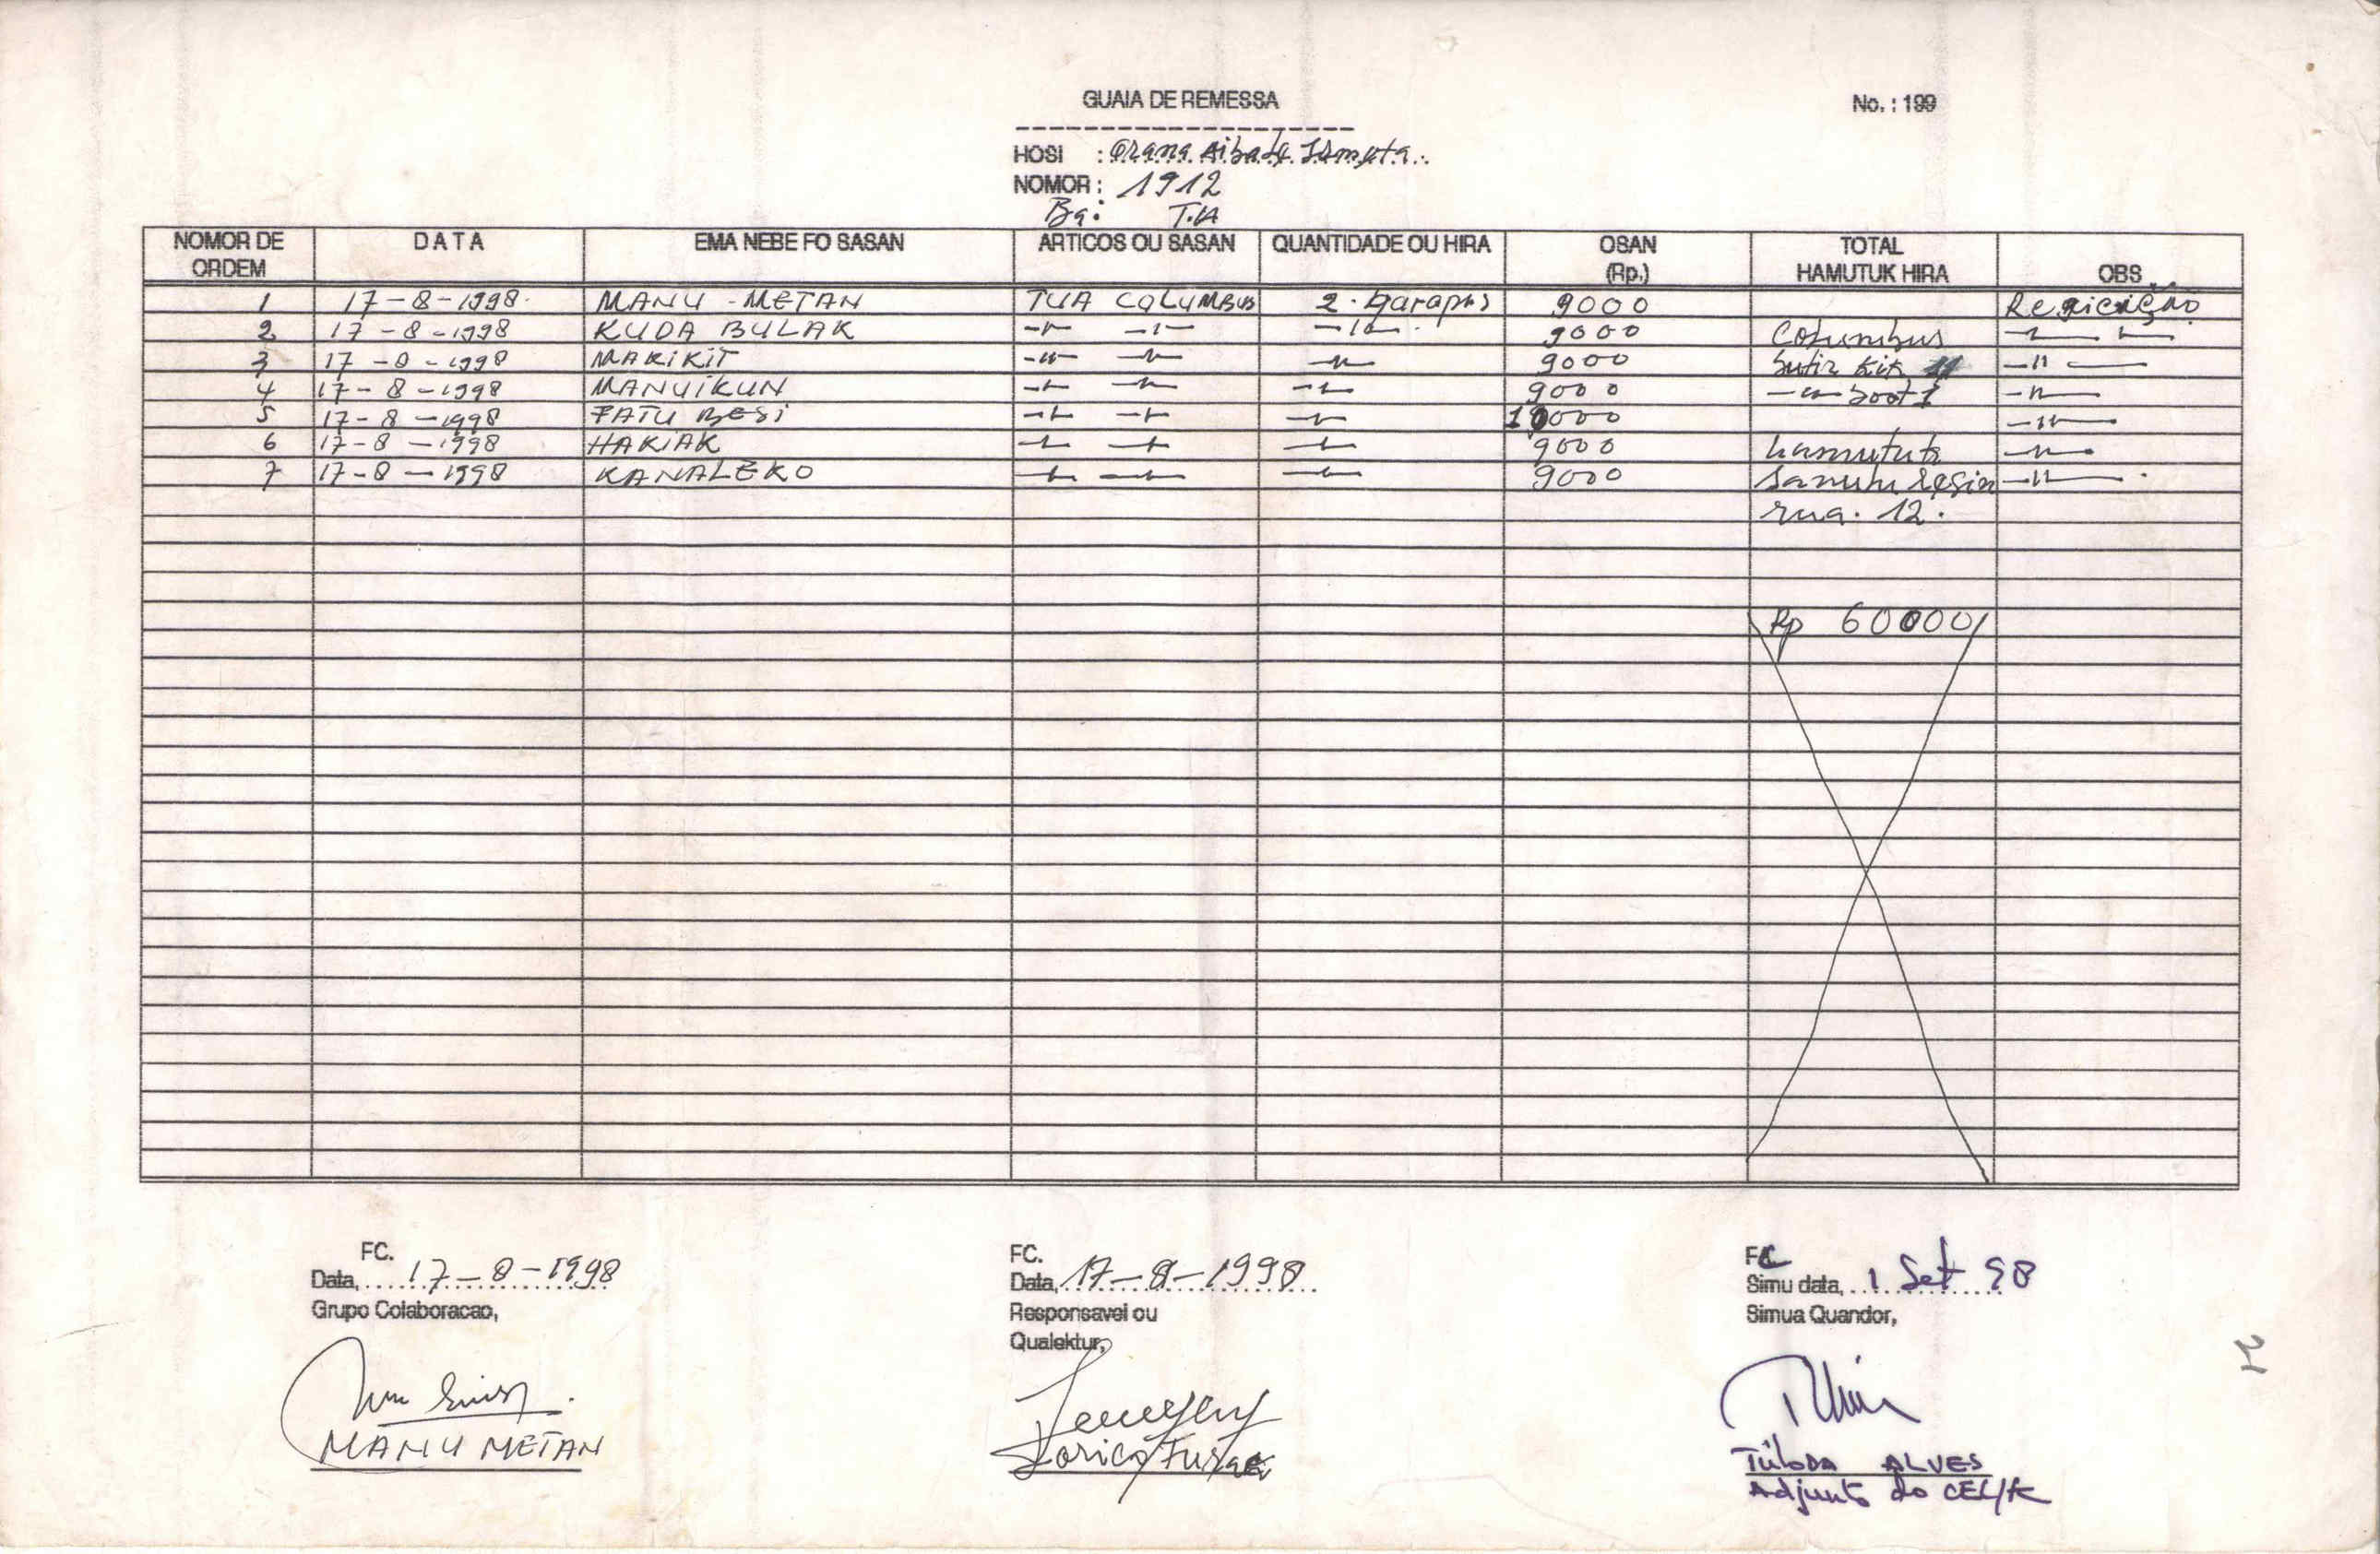 GUAIA DE REMESSA
No. : 199
HOSI :
NOMOR : 1912
Ba: T.A
NOMOR DE ORDEM DATA EMA NEBE FO SASAN ARTICOS OU SASAN QUANTIDADE OU HIRA OSAN (Rp.) TOTAL HAMUTUK HIRA OBS
1 17-8-1998 MANU-METAN TUA COLUMBUS 2 garapas 9000
2 17-8-1998 KUDA BULAK -"- -"- -"- 9000 Columbus -"-
3 17-8-1998 MARIKIT -"- -"- -"- 9000 butir -"-
4 17-8-1998 MANUIKUN -"- -"- -"- 9000 -"- boot 1 -"-
5 17-8-1998 FATU BESI -"- -"- -"- 10000 -"-
6 17-8-1998 HAKIAK -"- -"- -"- 9000 hamutuk -"-
7 17-8-1998 KANALEKO -"- -"- -"- 9000 Sanulu resin -"-
rua. 12.
Rp 60000
FC.
Data, 17-8-1998
Grupo Colaboracao,
MANU METAN
FC.
Data, 17-8-1998
Responsavel ou
Qualektur,
FC
Simu data, 1 Set 98
Simua Quandor,
ALVES
Adjunto do